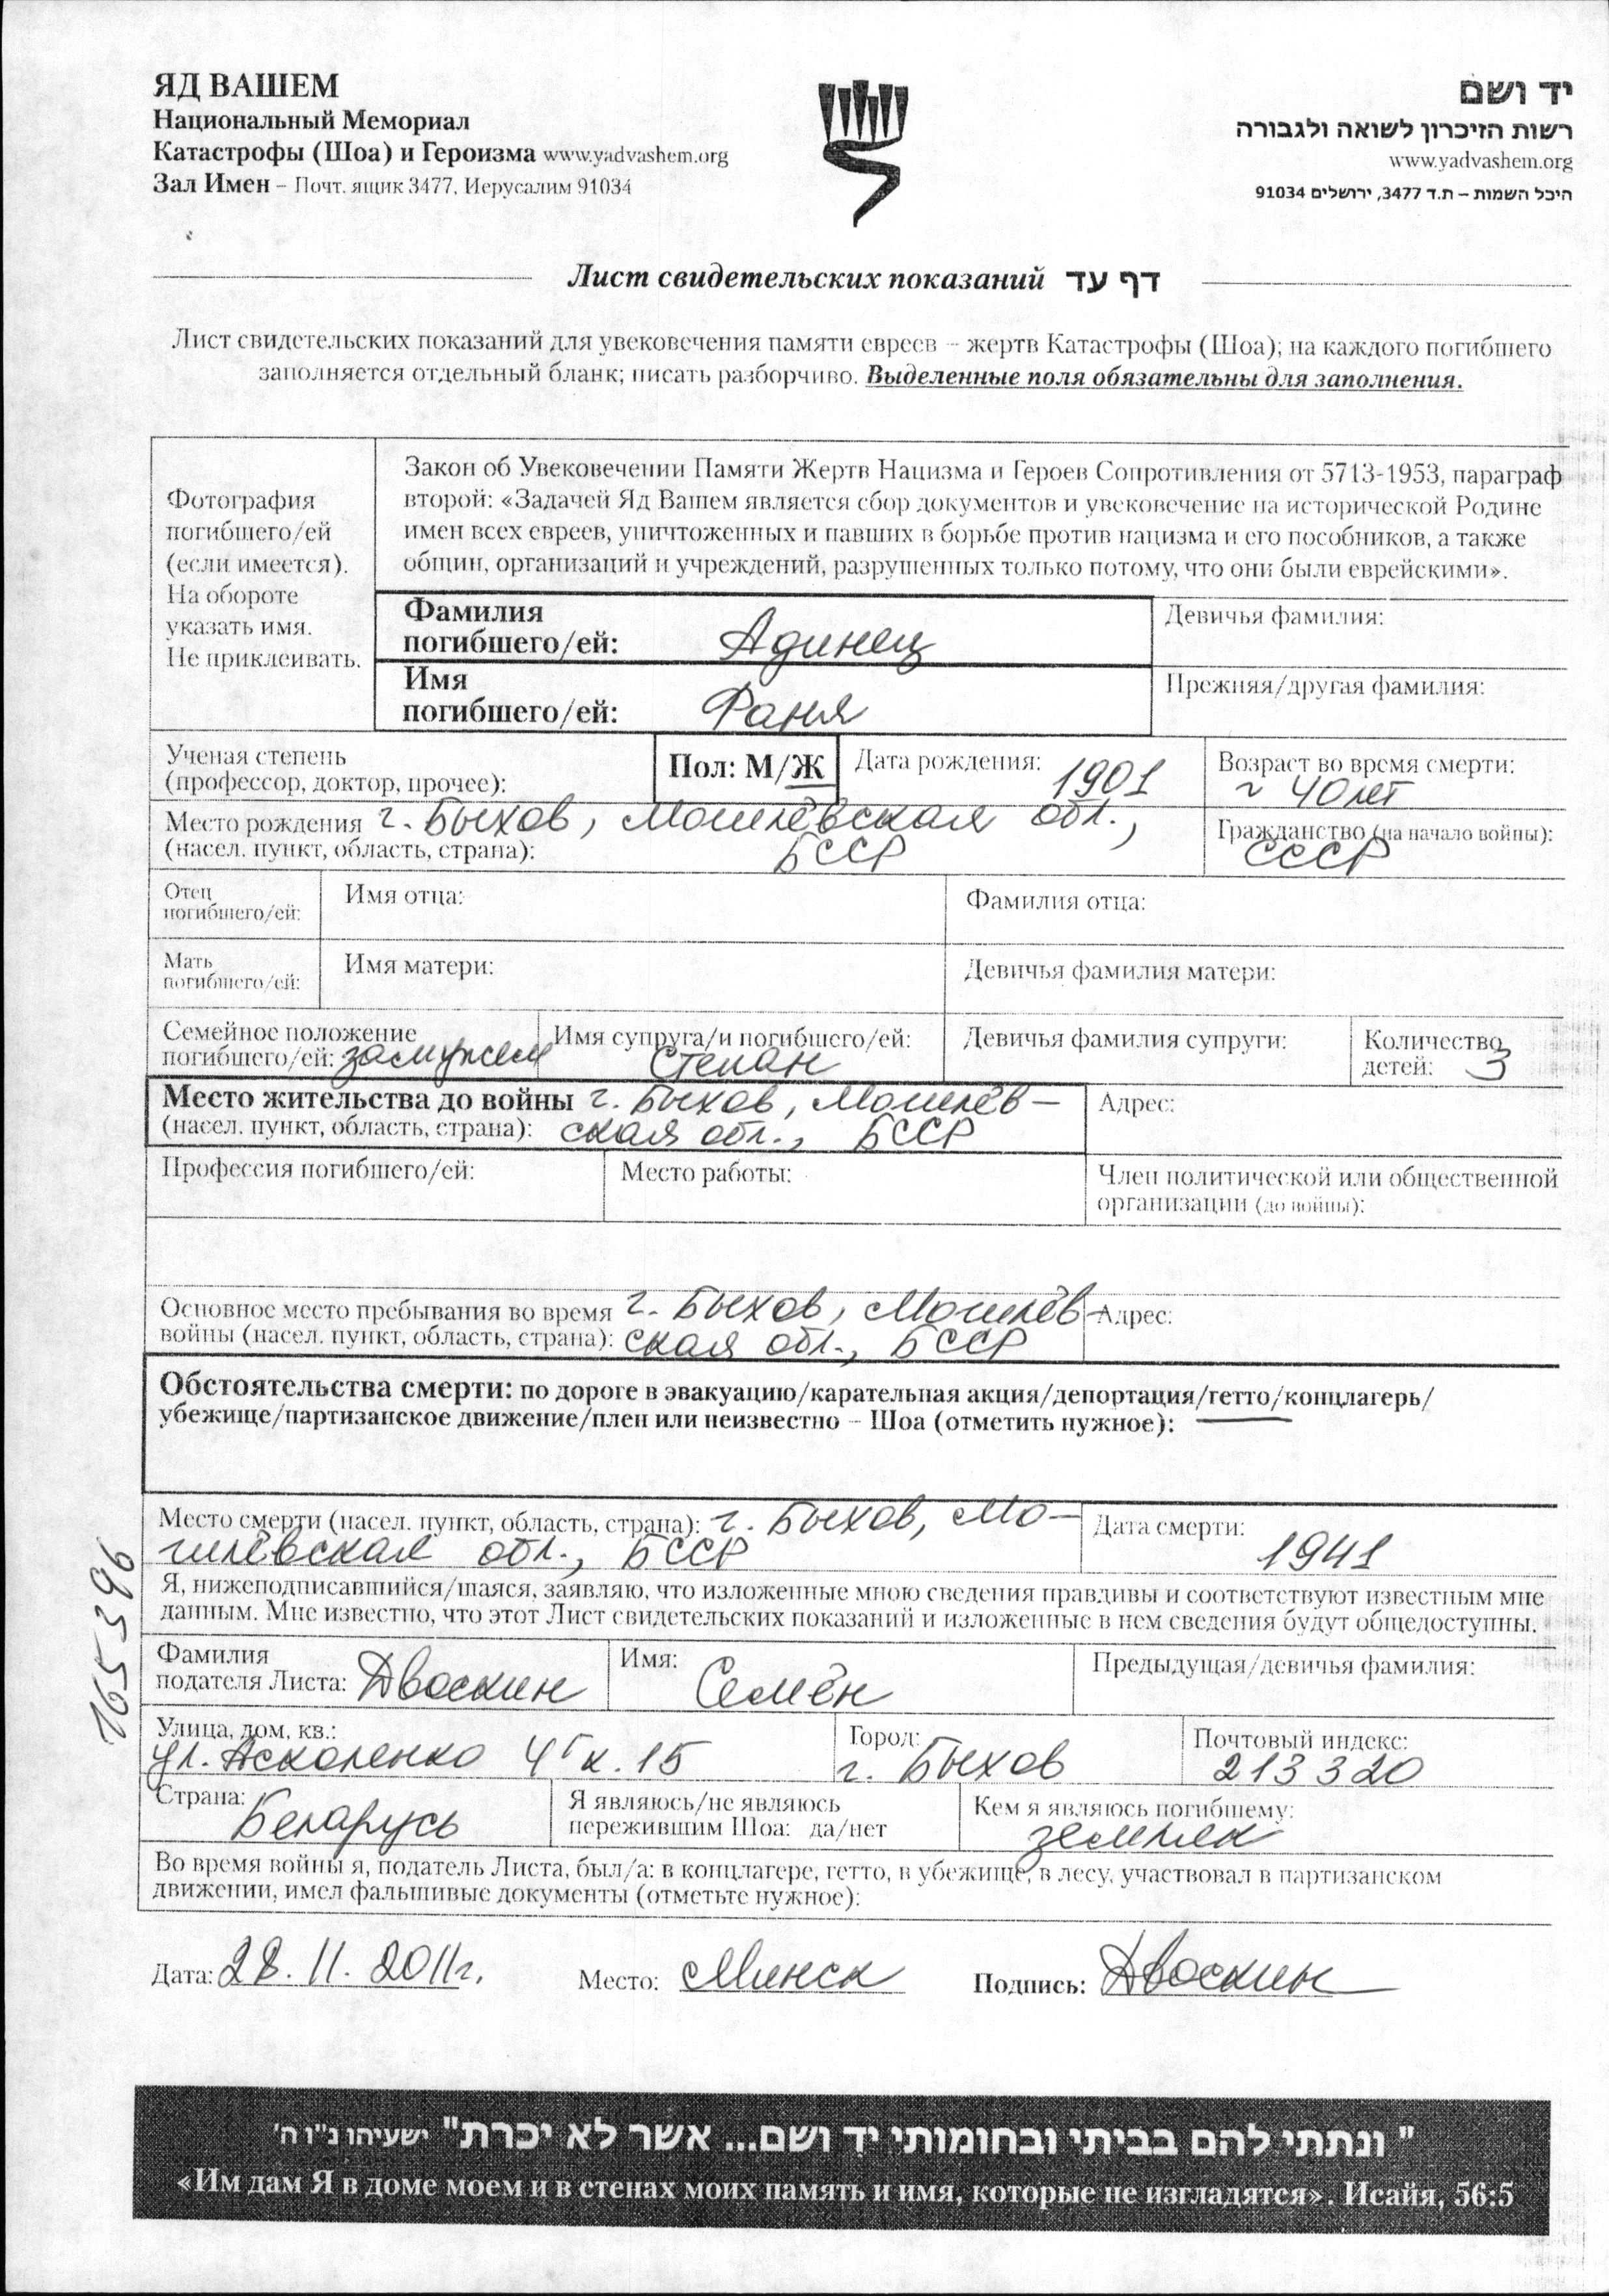 ЯД ВАШЕМ
Национальный Мемориал
Катастрофы (Шоа) и Героизма www.yadvashem.org
Зал Имен – Почт. ящик 3477, Иерусалим 91034
יד ושם
רשות הזיכרון לשואה ולגבורה
www.yadvashem.org
היכל השמות – ת.ד 3477, ירושלים 91034
Лист свидетельских показаний דף עד
Лист свидетельских показаний для увековечения памяти евреев – жертв Катастрофы (Шоа); на каждого погибшего
заполняется отдельный бланк; писать разборчиво. Выделенные поля обязательны для заполнения.
Фотография
погибшего/ей
(если имеется).
На обороте
указать имя.
Не приклеивать.
Закон об Увековечении Памяти Жертв Нацизма и Героев Сопротивления от 5713-1953, параграф
второй: «Задачей Яд Вашем является сбор документов и увековечение на исторической Родине
имен всех евреев, уничтоженных и павших в борьбе против нацизма и его пособников, а также
общин, организаций и учреждений, разрушенных только потому, что они были еврейскими».
Фамилия
погибшего/ей: Адинец
Девичья фамилия:
Имя
погибшего/ей: Фаня
Прежняя/другая фамилия:
Ученая степень
(профессор, доктор, прочее):
Пол: М/Ж
Дата рождения: 1901
Возраст во время смерти:
~ 40 лет
Место рождения г. Быхов, Могилёвская обл.,
(насел. пункт, область, страна): БССР
Гражданство (на начало войны):
СССР
Отец
погибшего/ей:
Имя отца:
Фамилия отца:
Мать
погибшего/ей:
Имя матери:
Девичья фамилия матери:
Семейное положение
погибшего/ей: замужем
Имя супруга/и погибшего/ей:
Степан
Девичья фамилия супруги:
Количество
детей: 3
Место жительства до войны г. Быхов, Могилёв-
(насел. пункт, область, страна): ская обл., БССР
Адрес:
Профессия погибшего/ей:
Место работы:
Член политической или общественной
организации (до войны):
Основное место пребывания во время г. Быхов, Могилёв-
войны (насел. пункт, область, страна): ская обл., БССР
Адрес:
Обстоятельства смерти: по дороге в эвакуацию/карательная акция/депортация/гетто/концлагерь/
убежище/партизанское движение/плен или неизвестно – Шоа (отметить нужное):
Место смерти (насел. пункт, область, страна): г. Быхов, Мо-
гилёвская обл., БССР
Дата смерти:
1941
Я, нижеподписавшийся/шаяся, заявляю, что изложенные мною сведения правдивы и соответствуют известным мне
данным. Мне известно, что этот Лист свидетельских показаний и изложенные в нем сведения будут общедоступны.
165396
Фамилия
подателя Листа: Двоскин
Имя:
Семён
Предыдущая/девичья фамилия:
Улица, дом, кв.:
ул. Асколенко 4г к. 15
Город:
г. Быхов
Почтовый индекс:
213320
Страна:
Беларусь
Я являюсь/не являюсь
пережившим Шоа: да/нет
Кем я являюсь погибшему:
земляк
Во время войны я, податель Листа, был/а: в концлагере, гетто, в убежище, в лесу, участвовал в партизанском
движении, имел фальшивые документы (отметьте нужное):
Дата: 28. 11. 2011г. Место: Минск Подпись: Двоскин
" ונתתי להם בביתי ובחומותי יד ושם... אשר לא יכרת" ישעיהו נ"ו ה'
«Им дам Я в доме моем и в стенах моих память и имя, которые не изгладятся». Исайя, 56:5